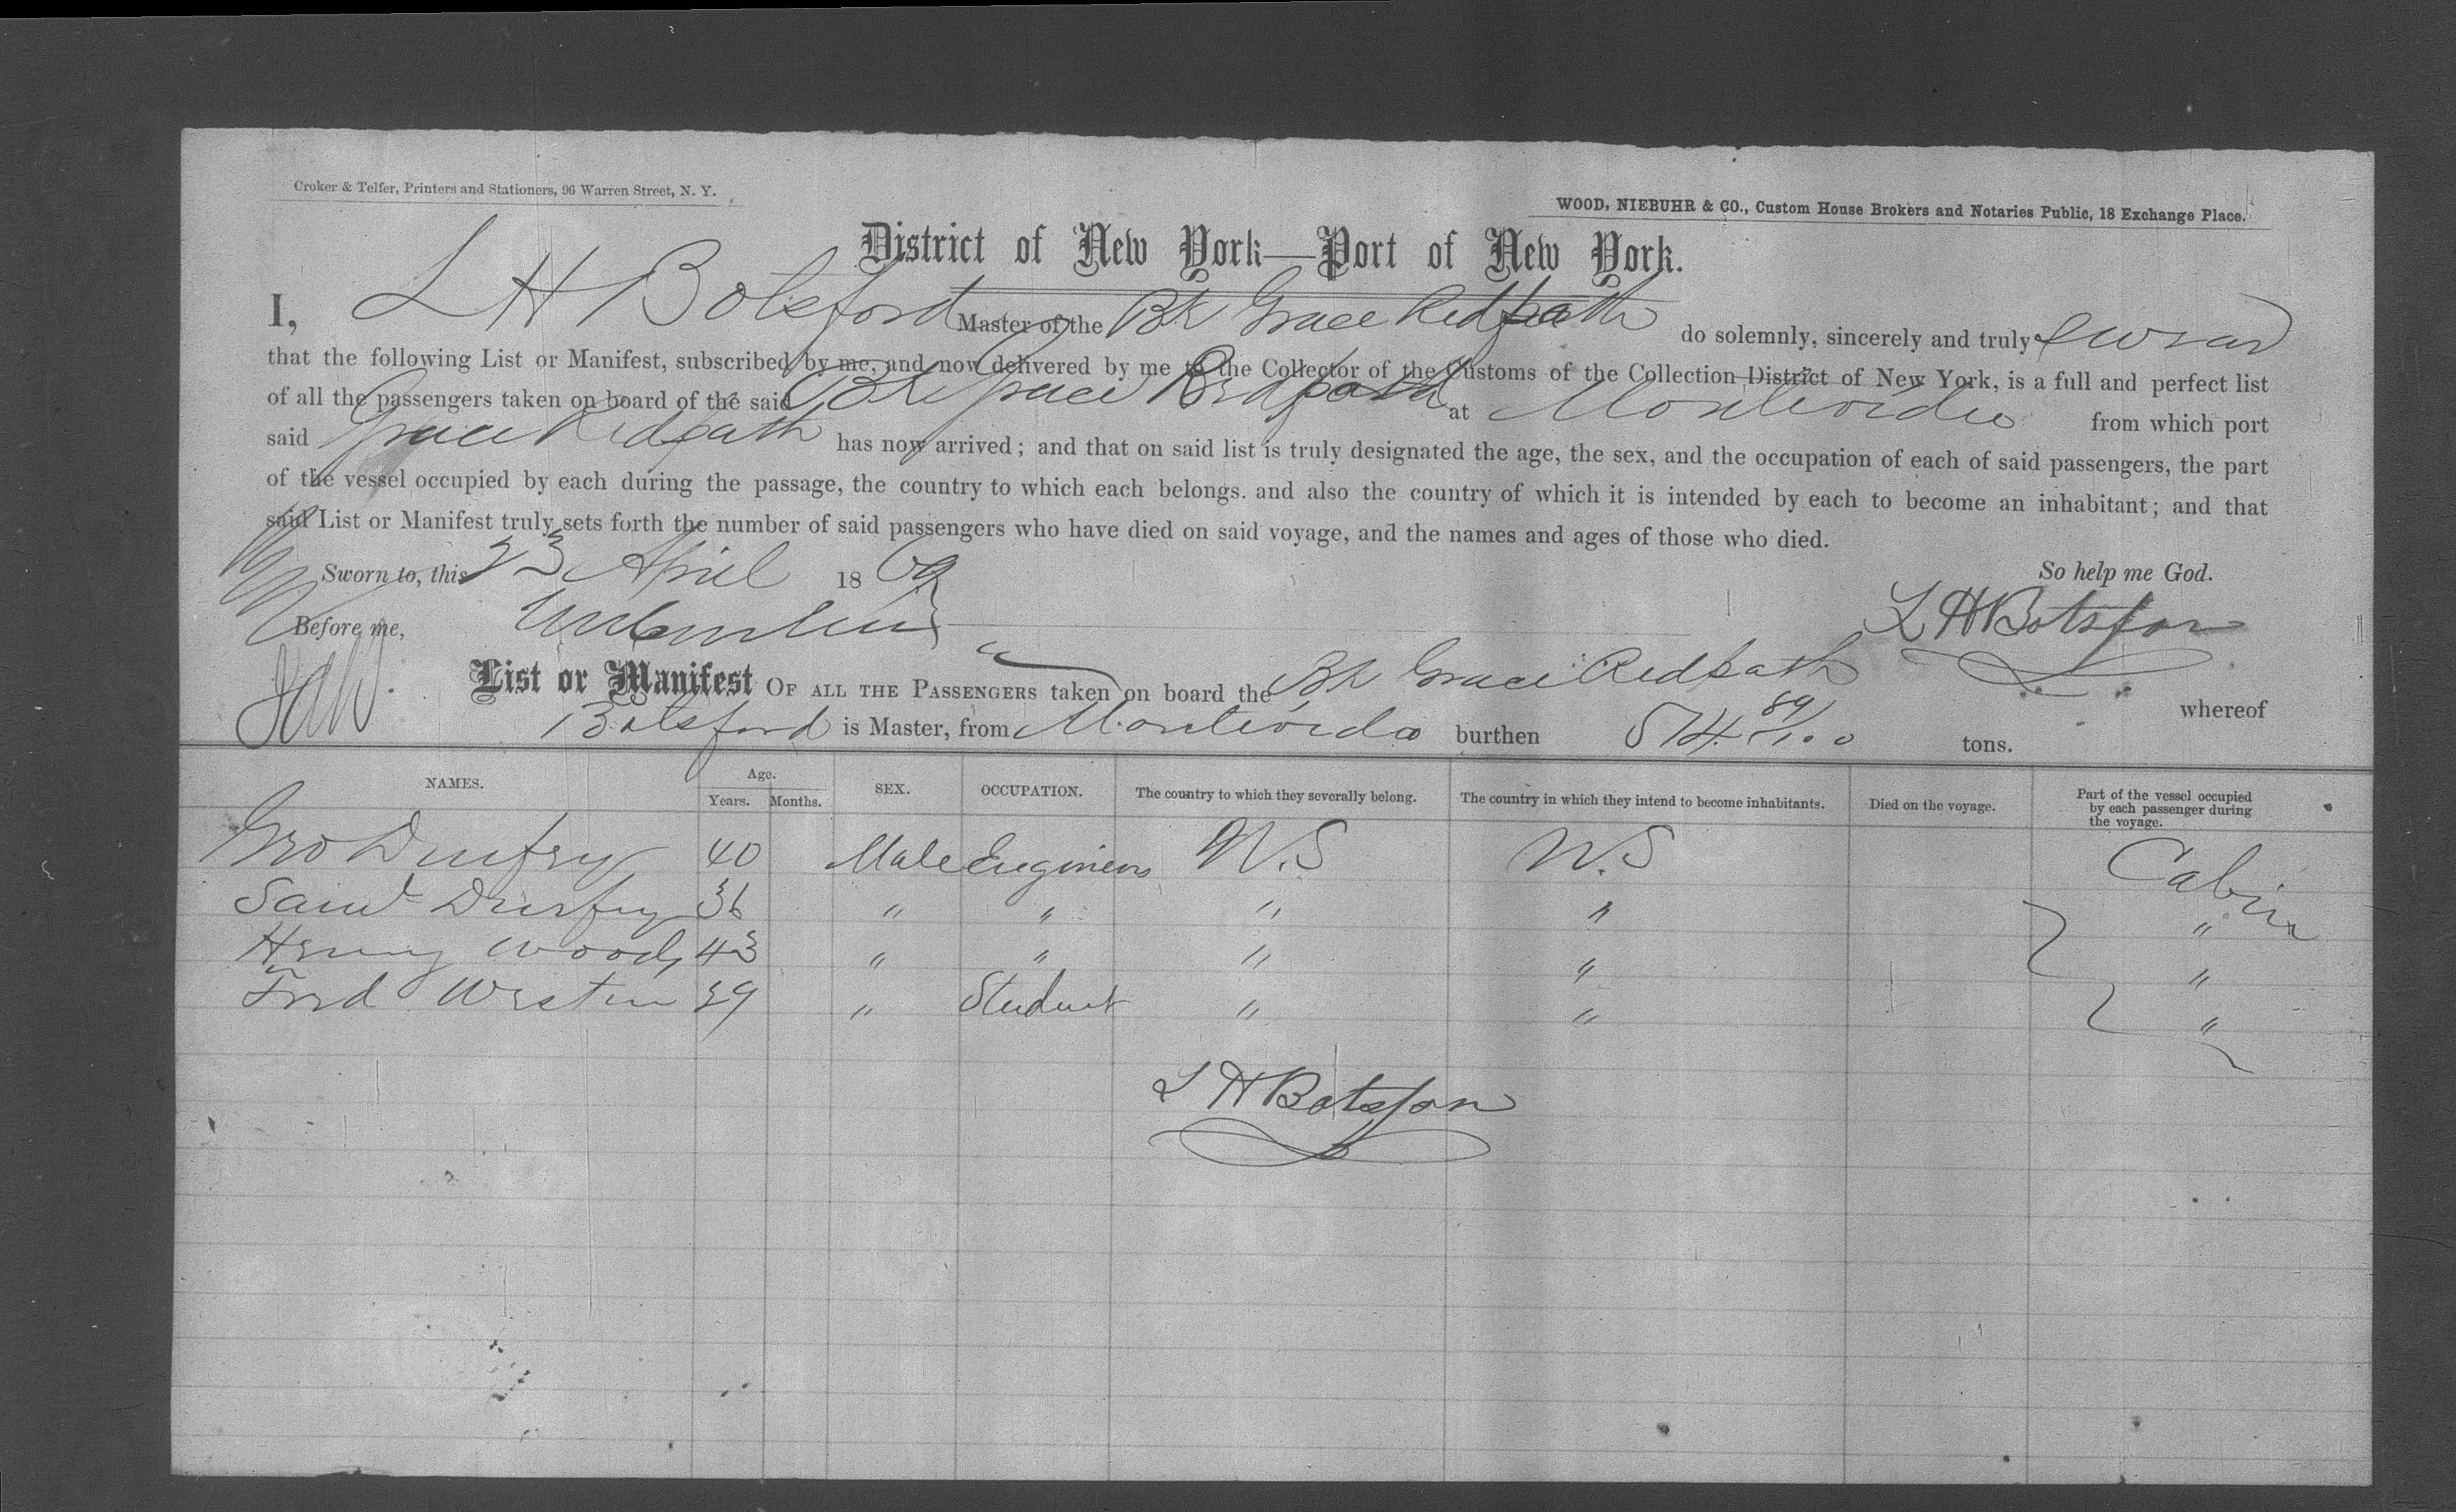 Croker & Telfer, Printers and Stationers, 96 Warren Street, N. Y.
WOOD, NIEBUHR & CO., Custom House Brokers and Notaries Public, 18 Exchange Place.
District of New York—Port of New York.
I, L H Botsford Master of the Bk Grace Redpath do solemnly, sincerely and truly swear
that the following List or Manifest, subscribed by me, and now delivered by me to the Collector of the Customs of the Collection District of New York, is a full and perfect list
of all the passengers taken on board of the said Bk Grace Redpath at Montevideo from which port
said Grace Redpath has now arrived; and that on said list is truly designated the age, the sex, and the occupation of each of said passengers, the part
of the vessel occupied by each during the passage, the country to which each belongs. and also the country of which it is intended by each to become an inhabitant; and that
said List or Manifest truly sets forth the number of said passengers who have died on said voyage, and the names and ages of those who died.
Sworn to, this 23 April 1869 So help me God.
Before me, L H Botsford
List or Manifest OF ALL THE PASSENGERS taken on board the Bk Grace Redpath whereof
Botsford is Master, from Montevideo burthen 574 89/100 tons.
NAMES. Age. Years. Months. SEX. OCCUPATION. The country to which they severally belong. The country in which they intend to become inhabitants. Died on the voyage. Part of the vessel occupied by each passenger during the voyage.
Geo Durfey 40 Male Engineers N.S N.S Cabin
Saml Durfey 36 " " " " "
Henry Woods 43 " " " " "
Fred Westen 29 " Student " " "
L H Botsford